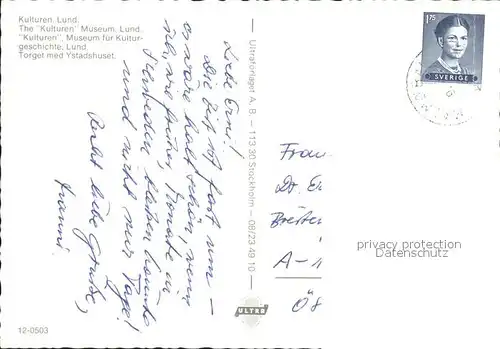 Kulturen. Lund.
The "Kulturen" Museum. Lund.
"Kulturen", Museum für Kultur-
geschichte. Lund.
Torget med Ystadshuset.
Liebe Erni!
Die Zeit ist fast um –
es wäre halt schön, wenn
ich, wie früher, Monate in
Schweden bleiben könnte
und nicht nur Tage!
Recht liebe Grüße,
Hanni
12-0503
Ultraförlaget A. B. – 113 30 Stockholm – 08/23 49 10
ULTRA
175
SVERIGE
Frau
Dr. Er
Breiten
A-1
ÖS
privacy protection
Datenschutz